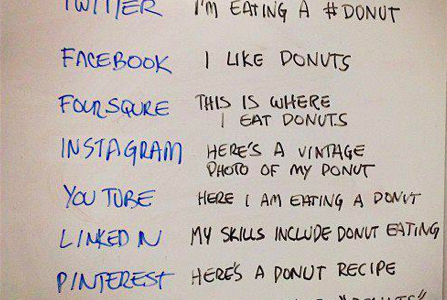 TWITTER I'M EATING A #DONUT
FACEBOOK I LIKE DONUTS
FOURSQURE THIS IS WHERE
I EAT DONUTS
INSTAGRAM HERE'S A VINTAGE
PHOTO OF MY DONUT
YOU TUBE HERE I AM EATING A DONUT
LINKED N MY SKILLS INCLUDE DONUT EATING
PINTEREST HERE'S A DONUT RECIPE